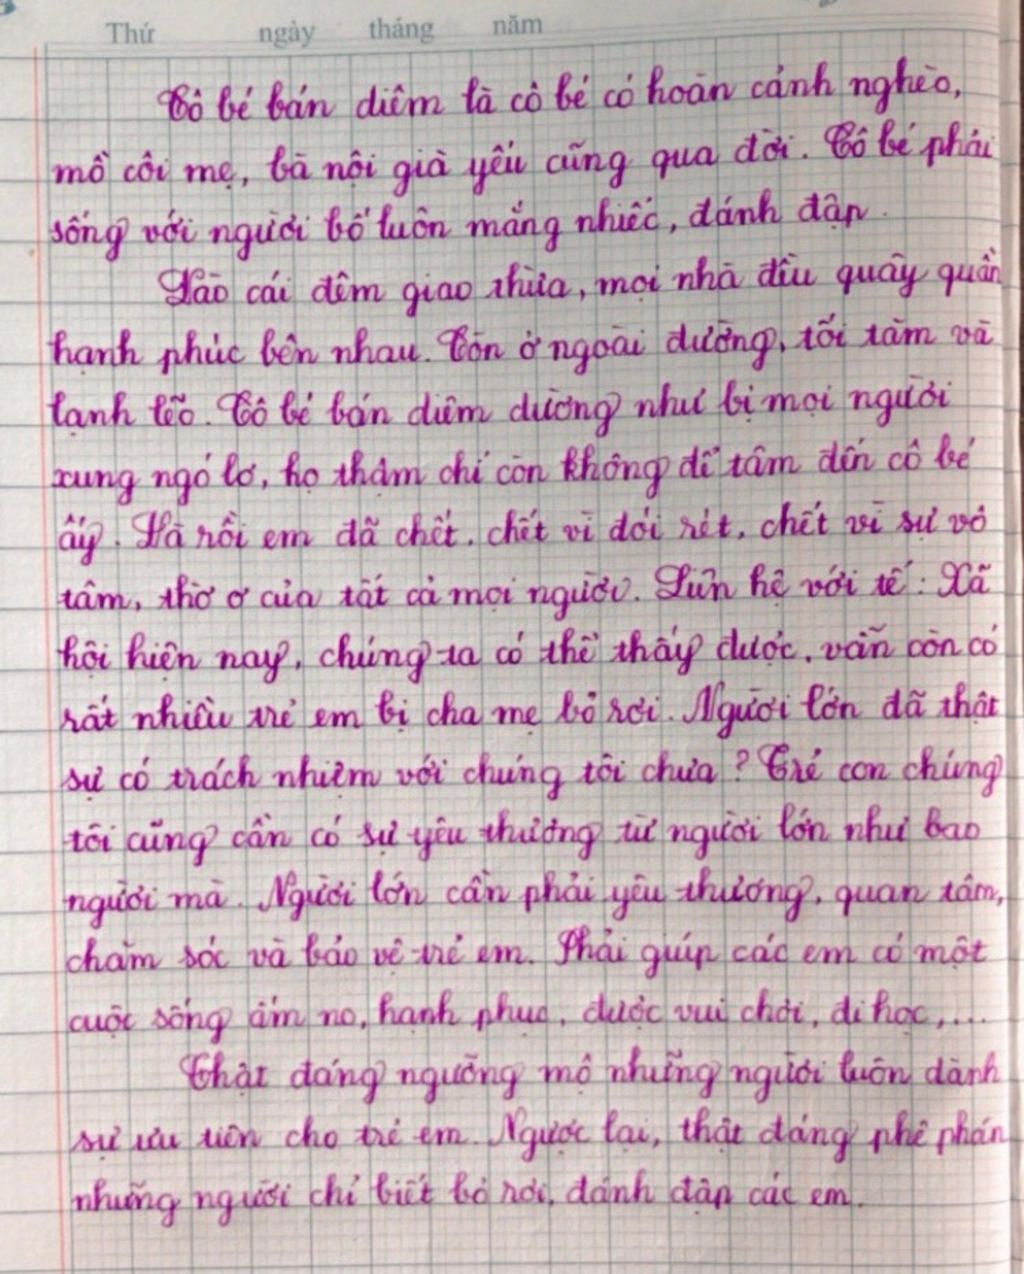 Thứ ngày tháng năm
Cô bé bán diêm là cô bé có hoàn cảnh nghèo,
mồ côi mẹ, bà nội già yếu cũng qua đời. Cô bé phải
sống với người bố luôn mắng nhiếc, đánh đập.
Vào cái đêm giao thừa, mọi nhà đều quây quần
hạnh phúc bên nhau. Còn ở ngoài đường, tối tăm và
lạnh lẽo. Cô bé bán diêm dường như bị mọi người
xung ngó lơ, họ thậm chí còn không để tâm đến cô bé
ấy. Và rồi em đã chết, chết vì đói rét, chết vì sự vô
tâm, thờ ơ của tất cả mọi người. Liên hệ với tế: Xã
hội hiện nay, chúng ta có thể thấy được, vẫn còn có
rất nhiều trẻ em bị cha mẹ bỏ rơi. Người lớn đã thật
sự có trách nhiệm với chúng tôi chưa? Trẻ con chúng
tôi cũng cần có sự yêu thương từ người lớn như bao
người mà. Người lớn cần phải yêu thương, quan tâm,
chăm sóc và bảo vệ trẻ em. Phải giúp các em có một
cuộc sống ấm no, hạnh phúc, được vui chơi, đi học,...
Thật đáng ngưỡng mộ những người luôn dành
sự ưu tiên cho trẻ em. Ngược lại, thật đáng phê phán
những người chỉ biết bỏ rơi, đánh đập các em.